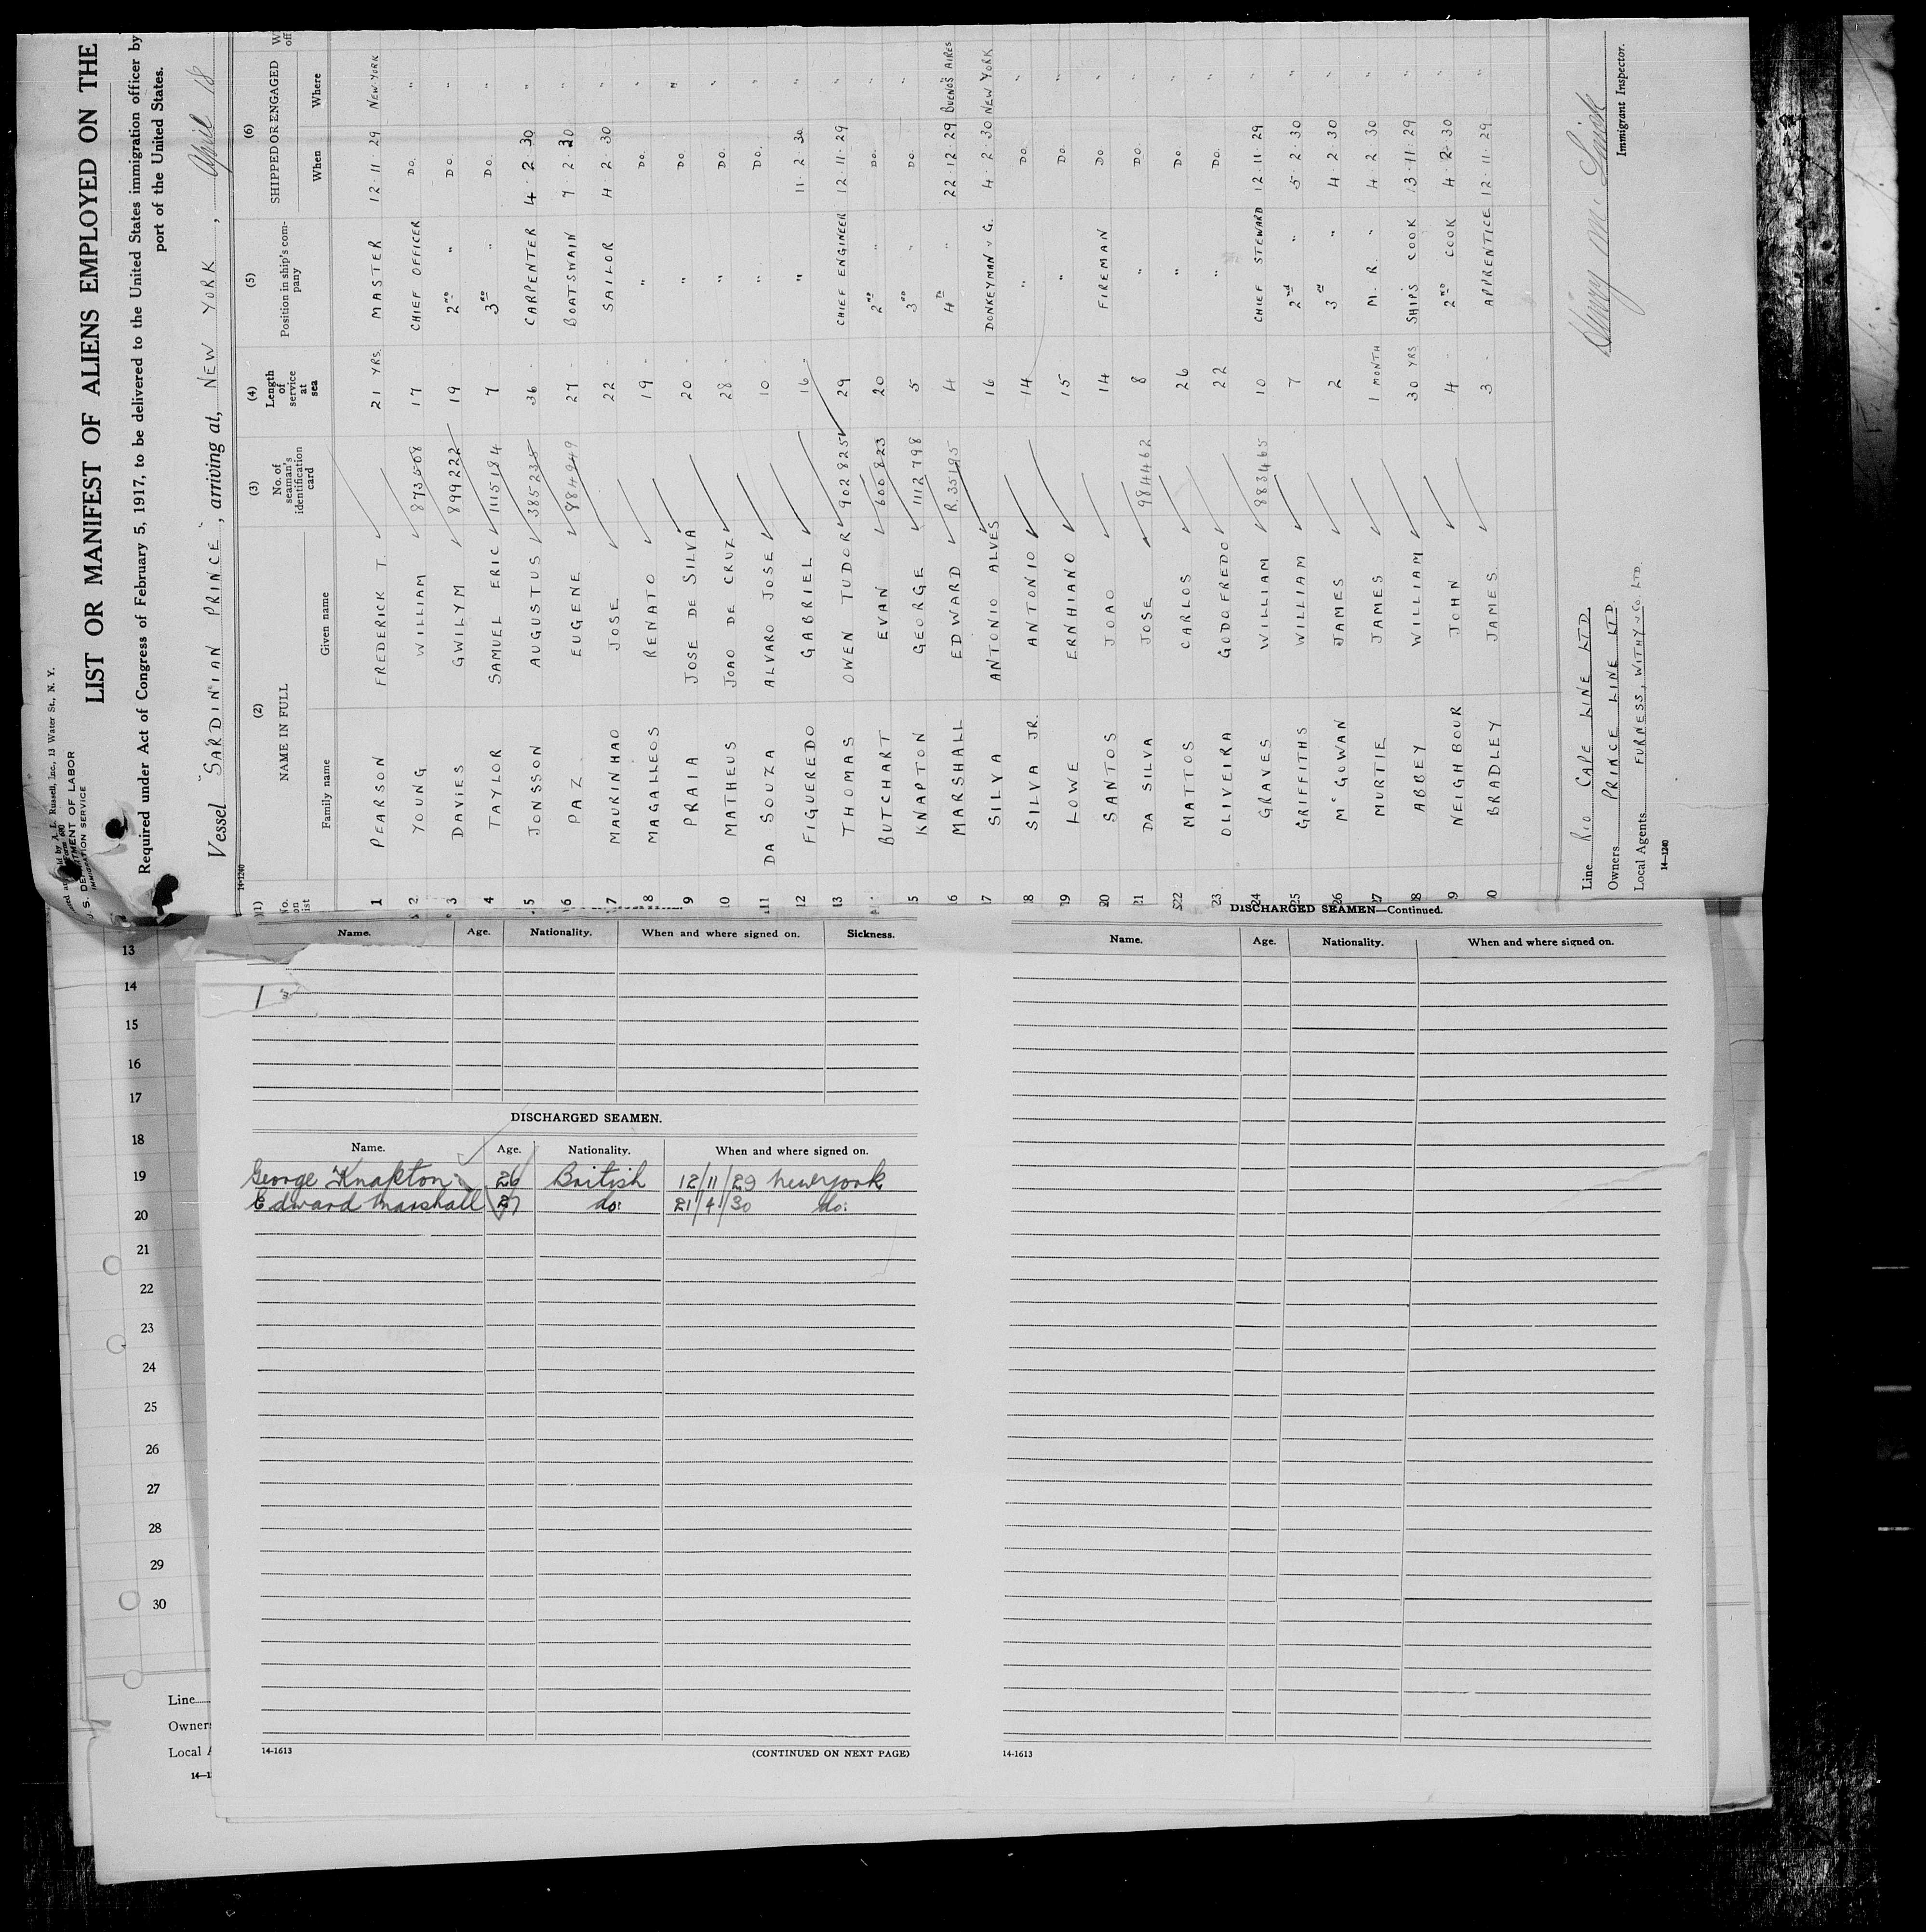 Sold by A. L. Russell, Inc., 13 Water St., N. Y.
Form 680
U. S. DEPARTMENT OF LABOR
IMMIGRATION SERVICE
LIST OR MANIFEST OF ALIENS EMPLOYED ON THE
Required under Act of Congress of February 5, 1917, to be delivered to the United States immigration officer by
port of the United States.
Vessel "SARDINIAN PRINCE", arriving at, NEW YORK, April 18
14-1240
(1) (2) (3) (4) (5) (6)
No. on list NAME IN FULL No. of seaman's identification card Length of service at sea Position in ship's company SHIPPED OR ENGAGED
Family name Given name When Where
1 PEARSON FREDERICK T. 21 YRS. MASTER 12·11·29 NEW YORK
2 YOUNG WILLIAM 873508 17 CHIEF OFFICER DO. "
3 DAVIES GWILYM 899222 19 2ND " DO. "
4 TAYLOR SAMUEL ERIC 1115184 7 3RD " DO. "
5 JONSSON AUGUSTUS 385235 36 CARPENTER 4·2·30 "
6 PAZ EUGENE 884949 27 BOATSWAIN 7·2·30 "
7 MAURINHAO JOSE 22 SAILOR 4·2·30 "
8 MAGALLEOS RENATO 19 " DO. "
9 PRAIA JOSE DE SILVA 20 " DO. "
10 MATHEUS JOAO DE CRUZ 28 " DO. "
11 DA SOUZA ALVARO JOSE 10 " DO. "
12 FIGUEREDO GABRIEL 16 " 11·2·30 "
13 THOMAS OWEN TUDOR 902825 29 CHIEF ENGINEER 12·11·29 "
BUTCHART EVAN 600823 20 2ND " DO. "
5 KNAPTON GEORGE 1112798 5 3RD " DO. "
16 MARSHALL EDWARD R.35195 4 4TH " 22·12·29 BUENOS AIRES
17 SILVA ANTONIO ALVES 16 DONKEYMAN & G. 4·2·30 NEW YORK
18 SILVA JR. ANTONIO 14 " DO. "
19 LOWE ERNHIANO 15 " DO. "
20 SANTOS JOAO 14 FIREMAN DO "
21 DA SILVA JOSE 984462 8 " DO. "
22 MATTOS CARLOS 26 " DO. "
23 OLIVEIRA GODOFREDO 22 " DO. "
24 GRAVES WILLIAM 883465 10 CHIEF STEWARD 12·11·29 "
25 GRIFFITHS WILLIAM 7 2nd " 5·2·30 "
26 McGOWAN JAMES 2 3RD " 4·2·30 "
27 MURTIE JAMES 1 MONTH M.R. " 4·2·30 "
28 ABBEY WILLIAM 30 YRS SHIPS COOK 13·11·29 "
9 NEIGHBOUR JOHN 4 2ND COOK 4·2·30 "
30 BRADLEY JAMES 3 APPRENTICE 12·11·29 "
Line RIO CAPE LINE LTD.
Owners PRINCE LINE LTD.
Local Agents FURNESS, WITHY & Co. LTD.
14-1240
Immigrant Inspector.
Name. Age. Nationality. When and where signed on. Sickness.
DISCHARGED SEAMEN.
Name. Age. Nationality. When and where signed on.
George Knapton 26 British 12/11/29 New york
Edward Marshall 27 do: 21/4/30 do:
14-1613 (CONTINUED ON NEXT PAGE)
DISCHARGED SEAMEN—Continued.
Name. Age. Nationality. When and where signed on.
14-1613
13
14
15
16
17
18
19
20
21
22
23
24
25
26
27
28
29
30
Line
Owners
Local A
14-1